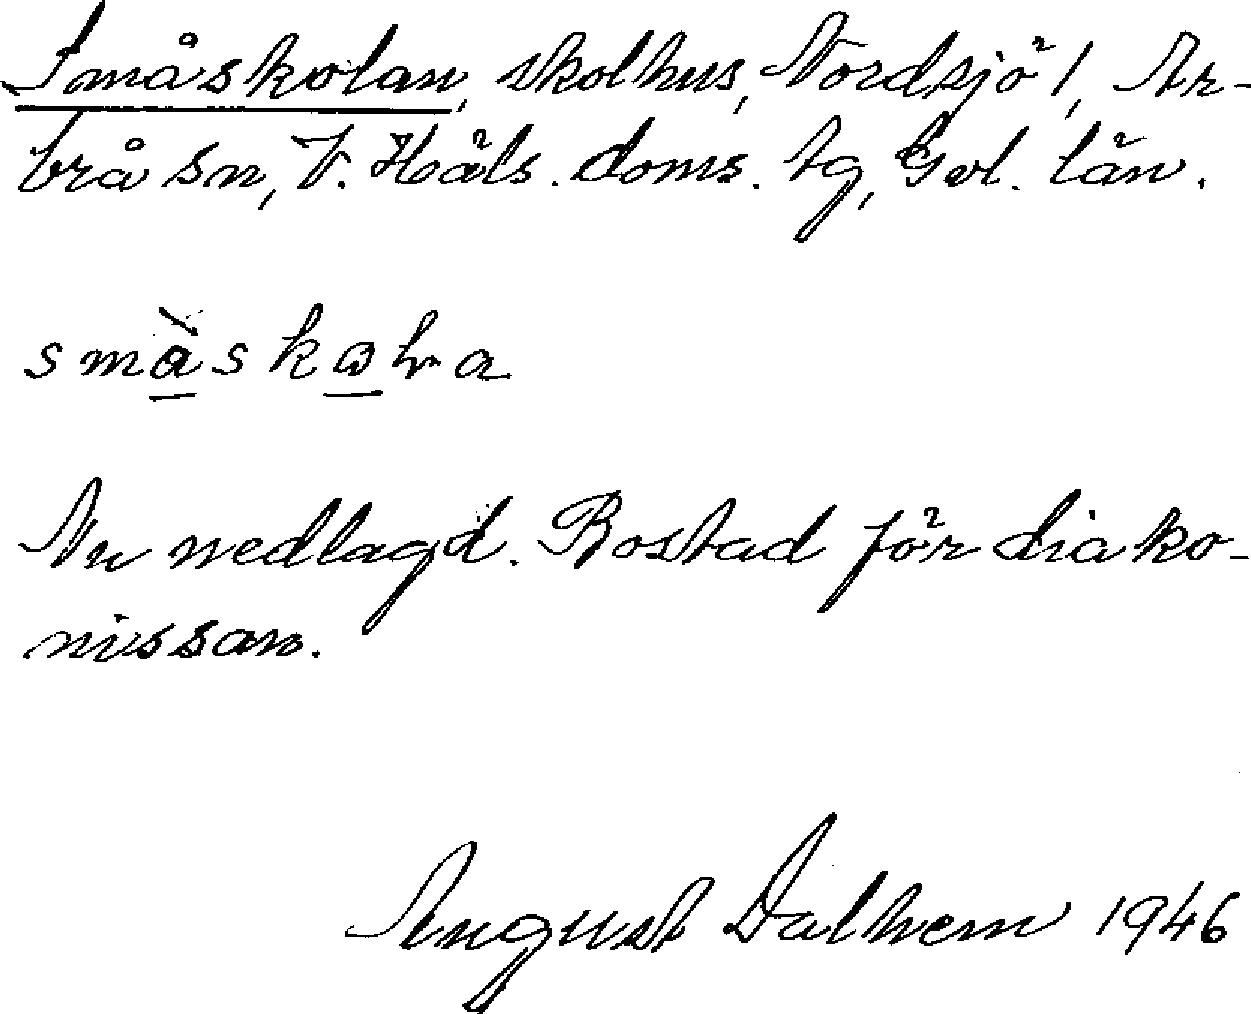 Småskolan, skolhus, Nordsjö 1, Ar-
brå sn, V. Häls. doms. tg, Gvl. län.
Nu nedlagd. Bostad för diako-
nissan.
August Dalhem 1946